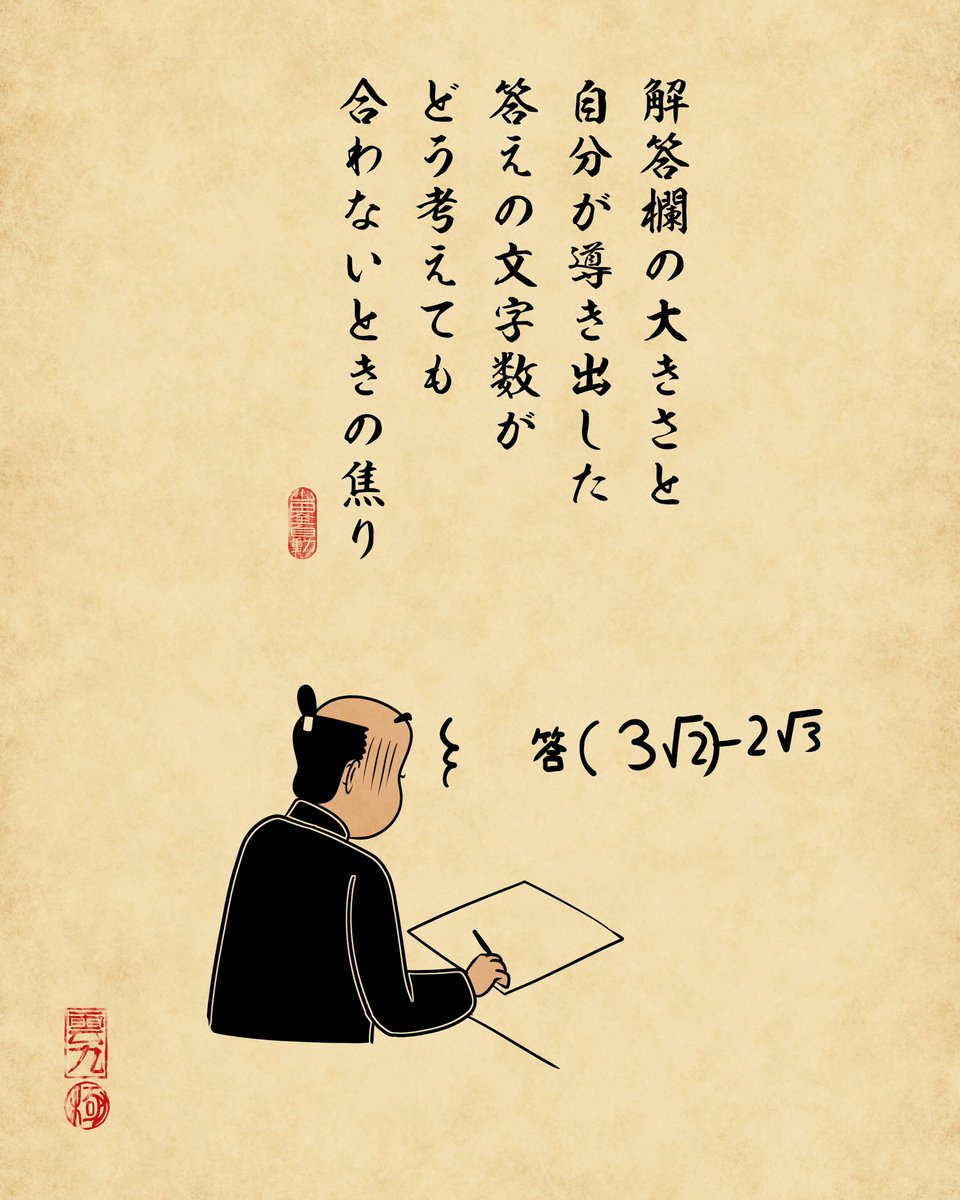 解答欄の大きさと
自分が導き出した
答えの文字数が
どう考えても
合わないときの焦り
答( 3√2)-2√3